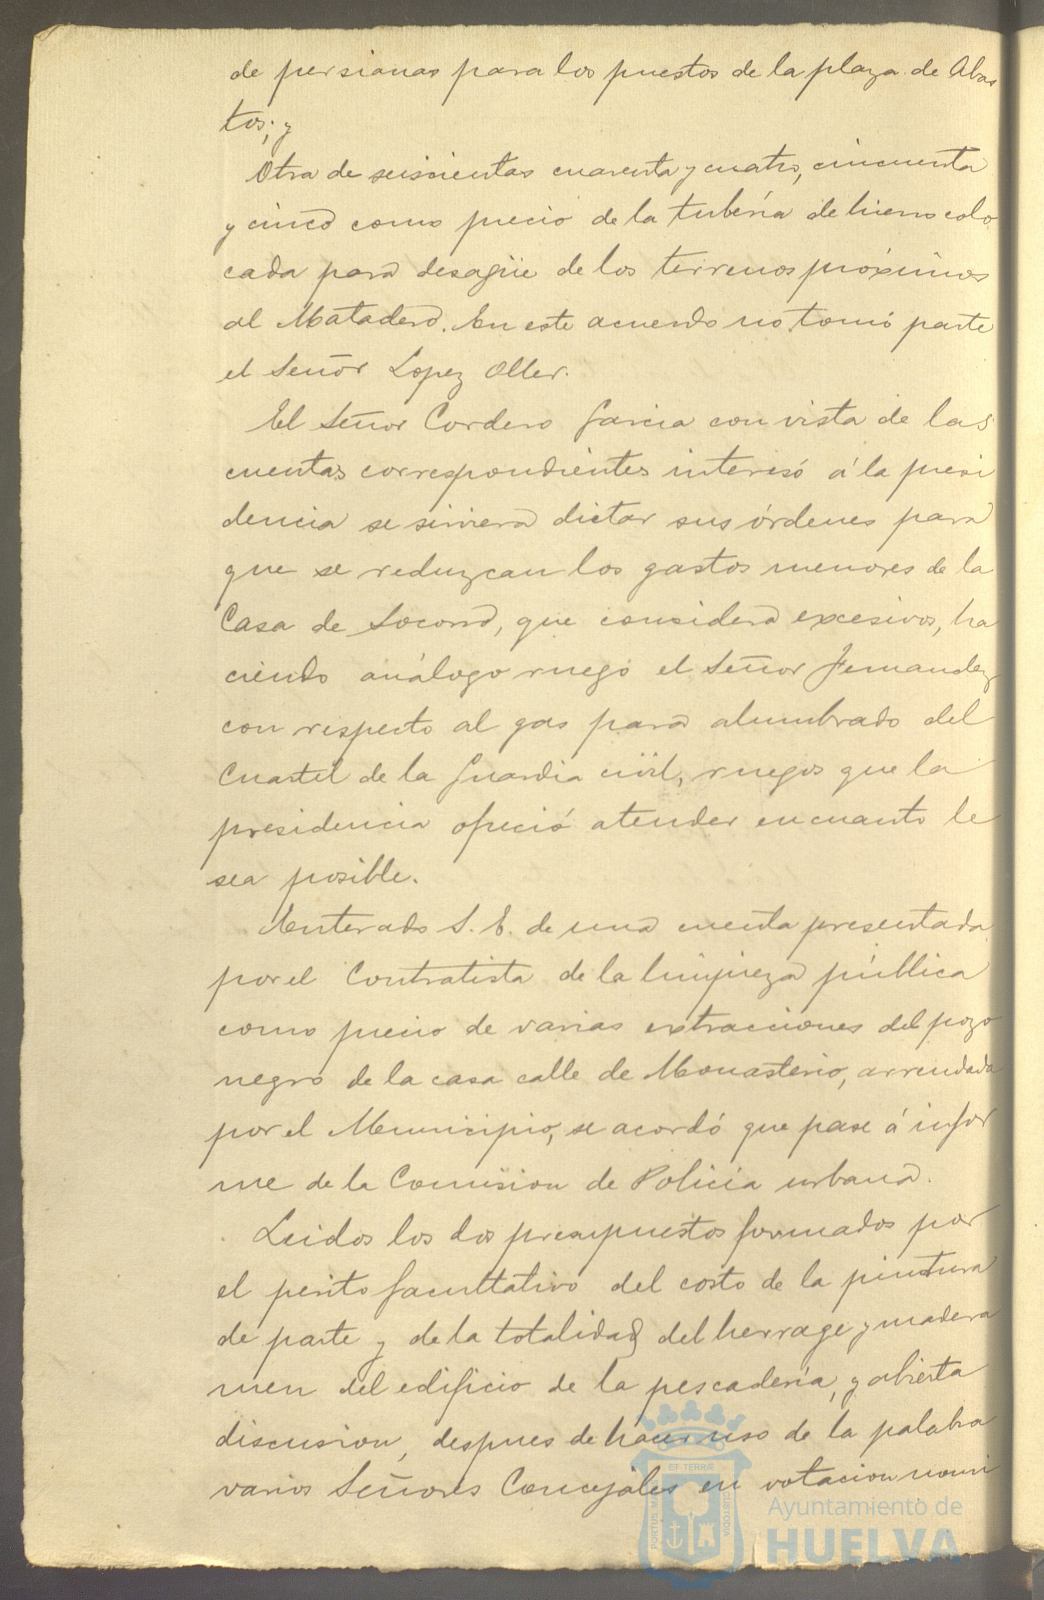 de persianas para los puestos de la plaza de Abas
tos; y
Otra de seiscientas cuarenta y cuatro, cincuenta
y cinco como precio de la tubería de hierro colo
cada para desagüe de los terrenos próximos
al Matadero. En este acuerdo no tomó parte
el Señor Lopez Oller.
El Señor Cordero Garcia con vista de las
cuentas correspondientes interesó á la presi
dencia se sirviera dictar sus órdenes para
que se reduzcan los gastos menores de la
Casa de Socorro, que considera excesivos, ha
ciendo análogo ruego el Señor Fernandez
con respecto al gas para alumbrado del
Cuartel de la Guardia civil, ruegos que la
presidencia ofreció atender en cuanto le
sea posible.
Enterado S. E. de una cuenta presentada
por el Contratista de la limpieza pública
como precio de varias extracciones del pozo
negro de la casa calle de Monasterio, arrendada
por el Municipio, se acordó que pase á infor
me de la Comision de Policía urbana.
Leidos los dos presupuestos formados por
el perito facultativo del costo de la pintura
de parte y de la totalidad del herrage y madera
men del edificio de la pescadería, y abierta
discusion, despues de hacer uso de la palabra
varios Señores Concejales en votacion nomi
ET TERRÆ
PORTUS MARIS
CUSTODIA
Ayuntamiento de
HUELVA